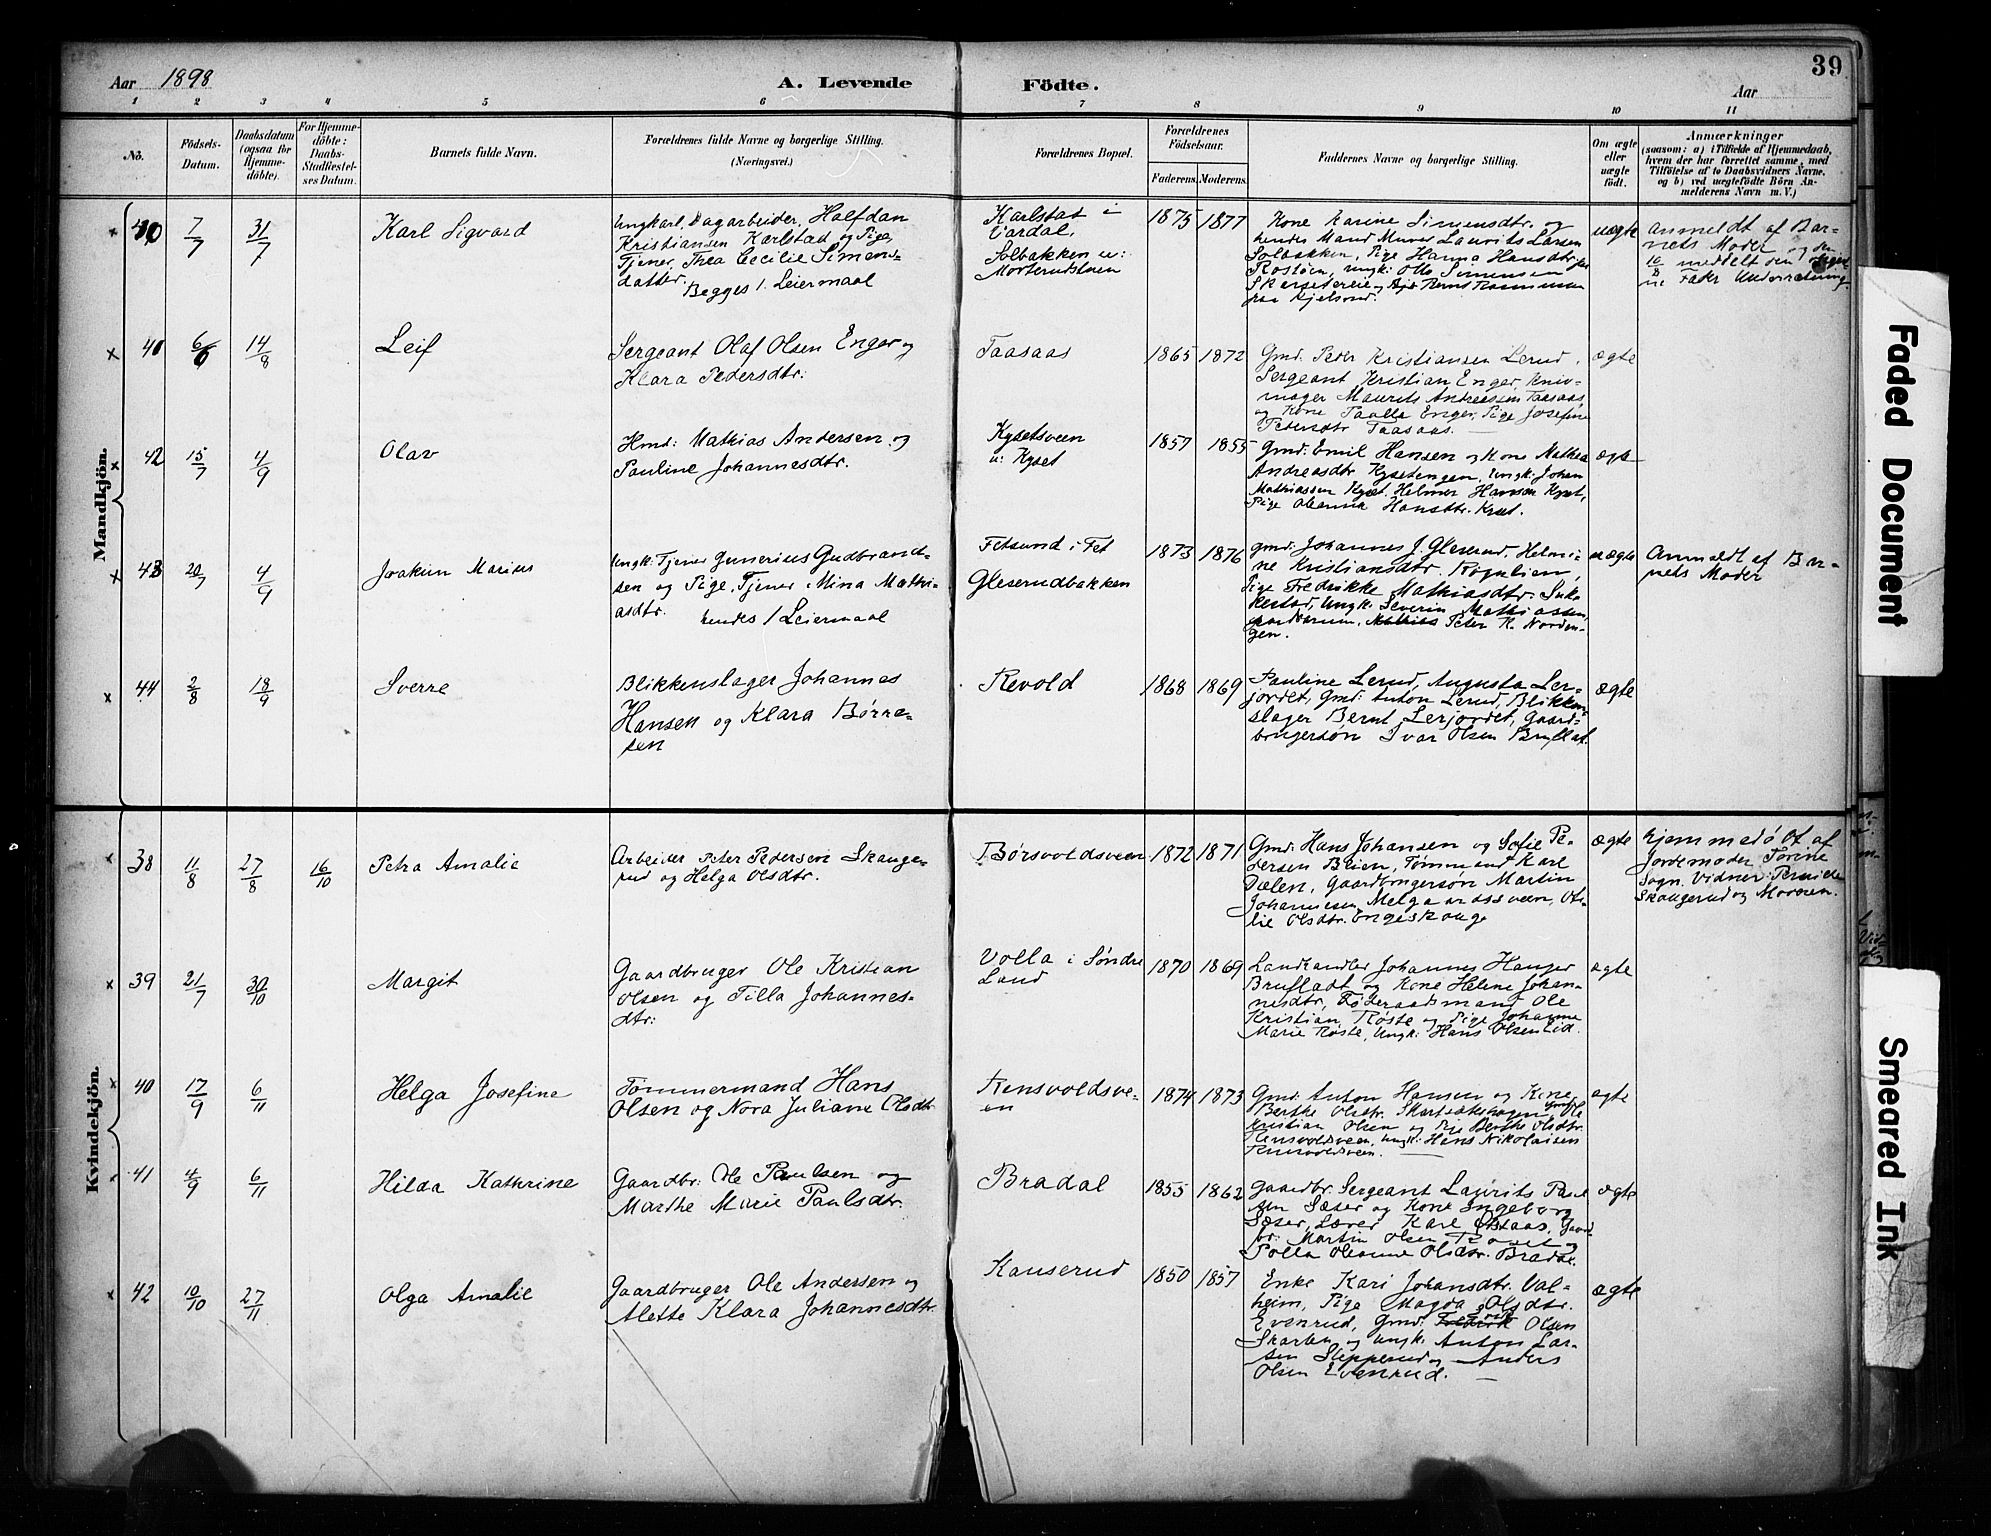 39
Aar 1898
A. Levende Födte.
Aar
1 2 3 4 5 6 7 8 9 10 11
No.
Födsels-
Datum.
Daabsdatum
(ogsaa for
Hjemme-
döbte).
For Hjemme-
döbte:
Daabs-
Stadfæstel-
ses Datum.
Barnets fulde Navn.
Forældrenes fulde Navne og borgerlige Stilling.
(Næringsvei.)
Forældrenes Bopæl.
Forældrenes
Födselsaar.
Faderens. Moderens.
Faddernes Navne og borgerlige Stilling.
Om ægte
eller
uægte
födt.
Anmærkninger
(saasom: a) i Tilfælde af Hjemmedaab,
hvem der har forrettet samme, med
Tilföielse af to Daabsvidners Navne,
og b) ved uægtefödte Börn An-
melderens Navn m. V.)
Mandkjön.
40 7/7 31/7 Karl Sigvard
Ungkarl, Dagarbeider, Halfdan
Kristiansen Karlstad og Pige,
Tjener, Thea Cecilie Simens-
datter. Begges 1. Leiermaal
Karlstad i
Vardal,
Solbakken u:
Morterudstuen
1875 1877
Kone Karine Simensdtr. og
hendes Mand Murer Laurits Larsen
Solbakken, Pige Hanna Hansdtr.
Rostøen, Ungk: Otto Simensen
uægte
Anmeldt af Bar-
nets Moder og den
10/8 meddelt den
Fader Underretning.
41 6/6 14/8 Leif
Sergeant Olaf Olsen Enger og
Klara Pedersdtr:
Taasaas
1865 1872
Gmd. Peder Kristiansen Lerud,
Sergeant Kristian Enger, Kniv-
mager Maurits Andreassen Taasaas,
og Kone Paulla Enger, Pige Josefine
Petersdtr Taasaas.
ægte
42 15/7 4/9 Olav
Hmd: Mathias Andersen og
Pauline Johannesdtr.
Kysetsveen
u: Kyset
1857 1855
Gmd: Emil Hansen og Kone Mathea
Andreasdtr Kysetengen, Ungk: Johan
Mathiassen Kyset, Helmer Hansen Kyset,
Pige Oleanna Hansdtr. Kyset.
ægte
43 20/7 4/9 Joakim Marius
Ungk: Tjener Gunerius Gudbrand-
sen og Pige, Tjener Mina Mathi-
asdtr. hendes 1 Leiermaal
Fetsund i Fet
Gleserudbakken
1873 1876
Gmd: Johannes J. Gleserud, Helmi-
ne Kristiansdtr. Rognlien,
Pige Fredrikke Mathiasdtr. Suk-
kestad, Ungk: Severin Mathiassen
Peter K. Norden-
gen.
uægte
Anmeldt af Bar-
nets Moder
44 2/8 18/9 Sverre
Blikkenslager Johannes
Hansen og Klara Børre-
sen
Revold
1868 1869
Pauline Lerud, Augusta Ler-
jordet, Gmd: Anton Lerud, Blikken-
slager Bernt Lerjordet, Gaard-
brugersøn Ivar Olsen Bruflat.
ægte
Kvindekjön.
38 11/8 27/8 16/10 Petra Amalie
Arbeider Peter Pedersen Skauge-
rud og Helga Olsdtr.
Børsvoldsveen
1872 1871
Gmd: Hans Johansen og Sofie Pe-
dersen Blien, Tømmermand Karl
Dælen, Gaardbrugersøn Martin
Johannesen, Helga
lie Olsdtr. Engeskauge
ægte
hjemmedøbt af
Jordemoder Torine
Sogn. Vidner:
Skaugerud og Moderen.
39 21/7 30/10 Margit
Gaardbruger Ole Kristian
Olsen og Tilla Johannes-
dtr:
Volla i Søndre
Land
1870 1869
Landhandler Johannes Hanger
Brufladt og Kone Helene Johan-
nesdtr, Føderaadsmand Ole
Kristian Røste og Pige Johanne
Marie Røste, Ungk: Hans Olsen Lid.
ægte
40 17/9 6/11 Helga Josefine
Tømmermand Hans
Olsen og Nora Juliane Olsdtr
Rensvoldsve-
en
1874 1873
Gmd: Anton Hansen og Kone
Berthe Olsdtr. Skartsæterhagen, Gmd: Ole
Kristian Olsen og Pige Berthe Olsdtr.
Rensvoldsveen, Ungk: Hans Nikolaisen
Rensvoldsveen.
ægte
41 4/9 6/11 Hilda Kathrine
Gaardbr: Ole Paulsen og
Marthe Marie Paulsdtr.
Bradal
1855 1862
Gaardbr. Sergeant Laurits Paul-
sen Sæter og Kone Ingeborg
Sæter, Lærer Karl Østaas, Gaard-
br: Martin Olsen
Polla Oleanne Olsdtr. Bradal.
ægte
42 10/10 27/11 Olga Amalie
Gaardbruger Ole Andersen og
Alette Klara Johannesdtr.
Kauserud
1850 1857
Enke Kari Johansdtr. Val-
heim, Pige Magda Olsdtr.
Evenrud, Gmd: Olsen
Skarten og Ungk: Anton Lar-
sen Slepperud og Anders
Olsen Evenrud.
ægte
Faded Document
Smeared Ink